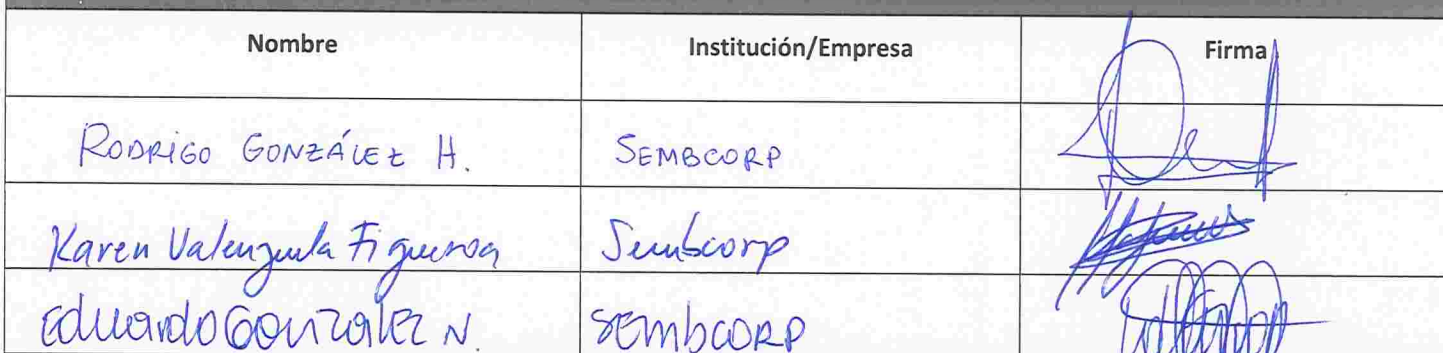 Nombre Institución/Empresa Firma
RODRIGO GONZÁLEZ H. SEMBCORP
Karen Valenzuela Figueroa Sembcorp
Eduardo Gonzalez N. SEMBCORP